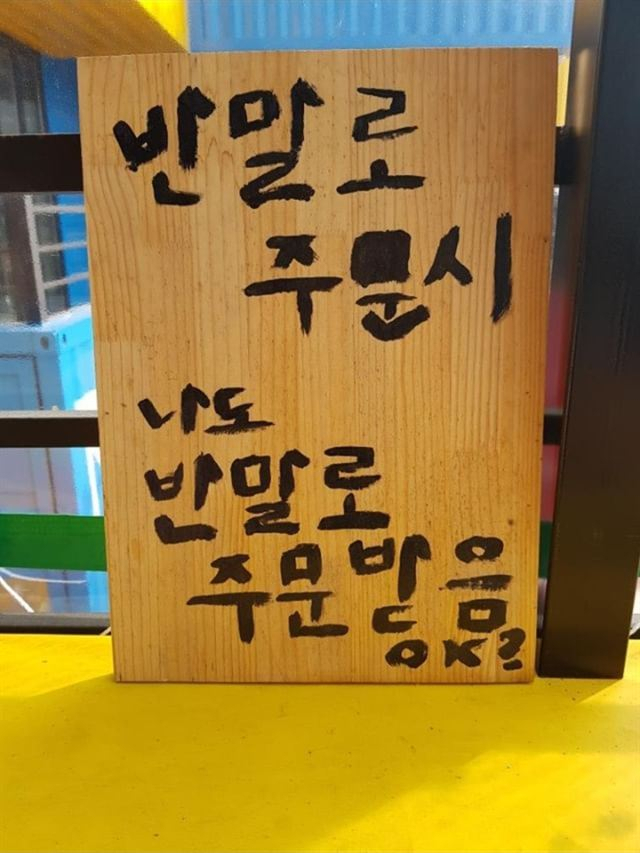 반말로
주문시
나도
반말로
주문받음
OK?